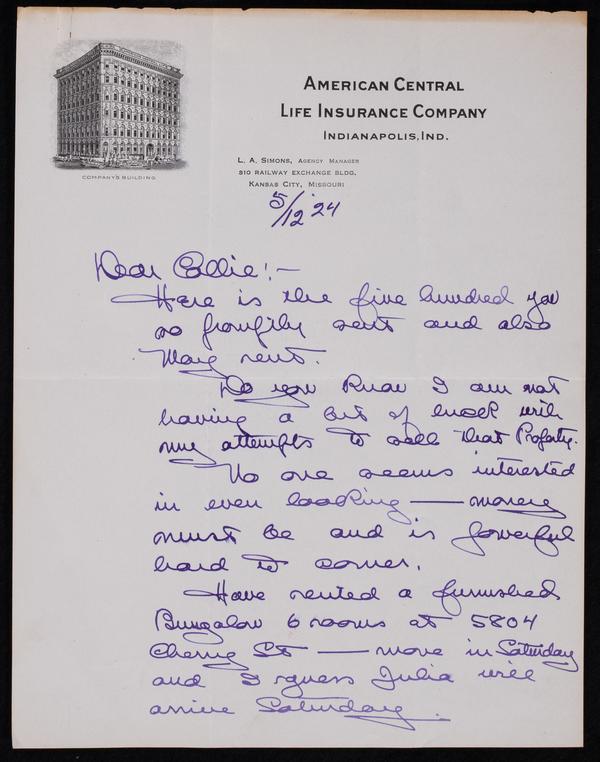 AMERICAN CENTRAL
LIFE INSURANCE COMPANY
INDIANAPOLIS, IND.
COMPANY'S BUILDING
L. A. SIMONS, AGENCY MANAGER
310 RAILWAY EXCHANGE BLDG.
KANSAS CITY, MISSOURI
5/12 '24
Dear Collie!-
Here is the five hundred you
so promptly sent and also
May rent.
Do you know I am not
having a bit of luck with
my attempts to sell that Property.
No one seems interested
in even looking — money
must be and is powerful
hard to corner.
Have rented a furnished
Bungalow 6 rooms at 5804
Cherry St — move in Saturday
and I guess Julia will
arrive Saturday.